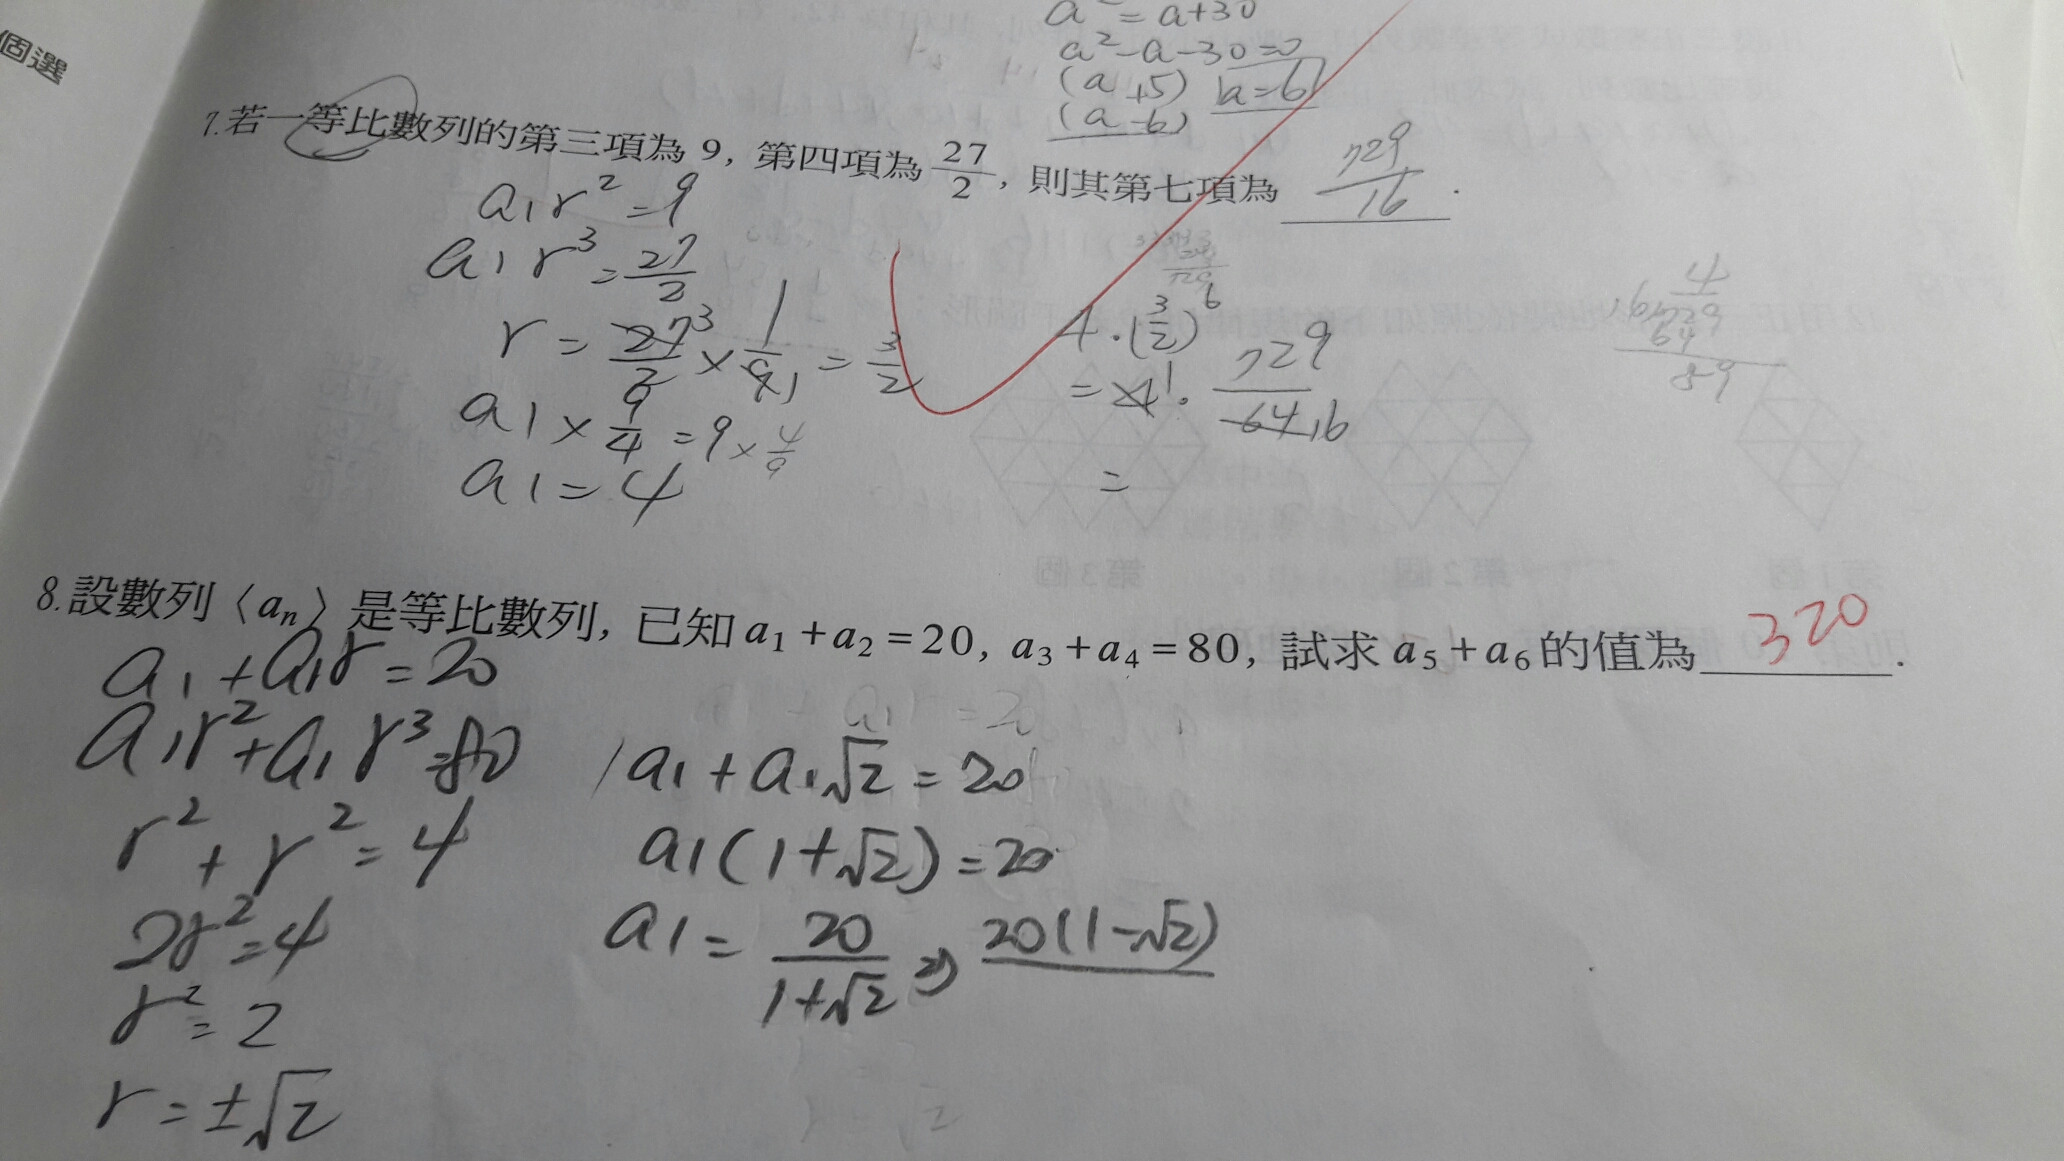 個選
a² = a+30
a²-a-30=0
(a+5) a=6
(a-6)
7.若一等比數列的第三項為 9, 第四項為 27/2, 則其第七項為 729/16 .
a₁r²=9
a₁r³=27/2
r = 27³/2 × 1/9₁ = 3/2
a₁ × 9/4 = 9 × 4/9
a₁ = 4
4·(3/2)⁶
= 4¹· 729/64 16
=
4
16 729
64
89
8.設數列〈aₙ〉是等比數列, 已知 a₁+a₂=20, a₃+a₄=80, 試求 a₅+a₆ 的值為 320 .
a₁+a₁r=20
a₁r²+a₁r³=80
r²+r²=4
2r²=4
r²=2
r=±√2
a₁+a₁√2=20
a₁(1+√2)=20
a₁= 20/1+√2 ⇒ 20(1-√2)
第3個
第2個
第1個